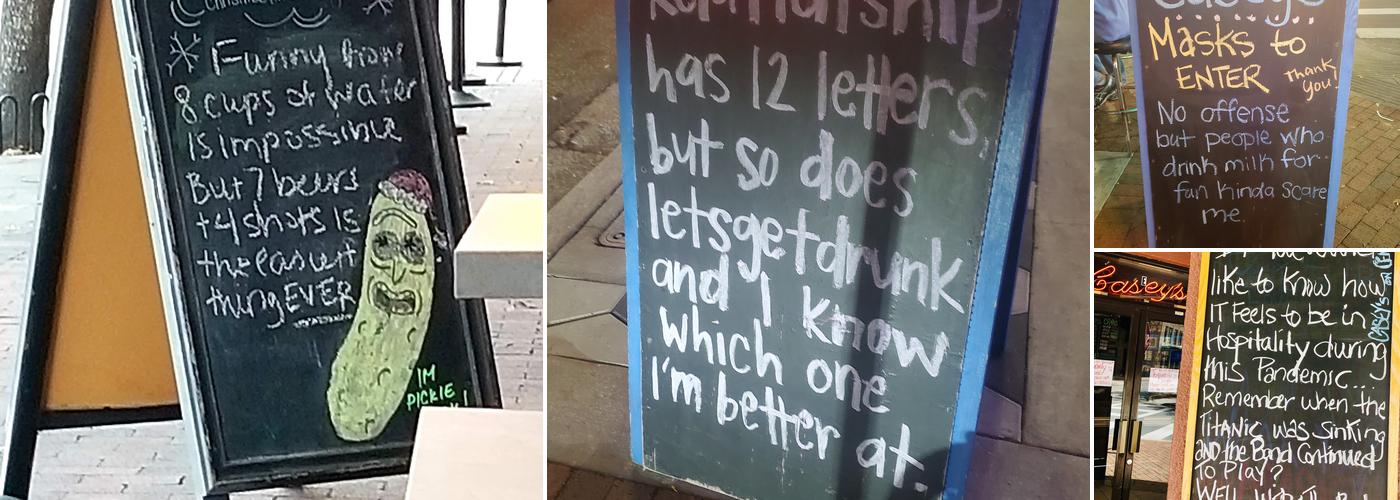 Funny how
8 cups of water
Is impossible
But 7 beers
+4 shots Is
the easiest
thing EVER
IM
PICKLE
Relationship
has 12 letters,
but so does
letsgetdrunk
and I know
which one
I'm better at.
Casey's
Masks to
ENTER
Thank
you!
No offense
but people who
drink milk for
fun kinda scare
me.
Casey's
like to know how
IT Feels to be in
Hospitality during
this Pandemic...
Remember when the
TITANIC was sinking
and the Band Continued
To Play?